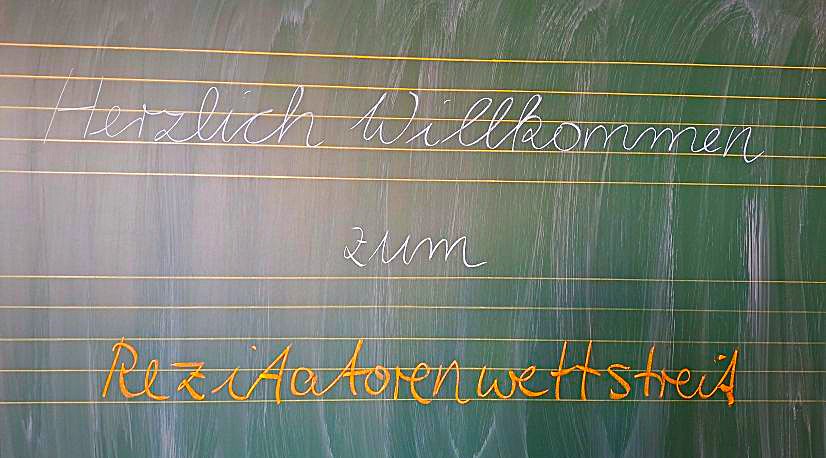 Herzlich Willkommen
zum
Rezitatorenwettstreit